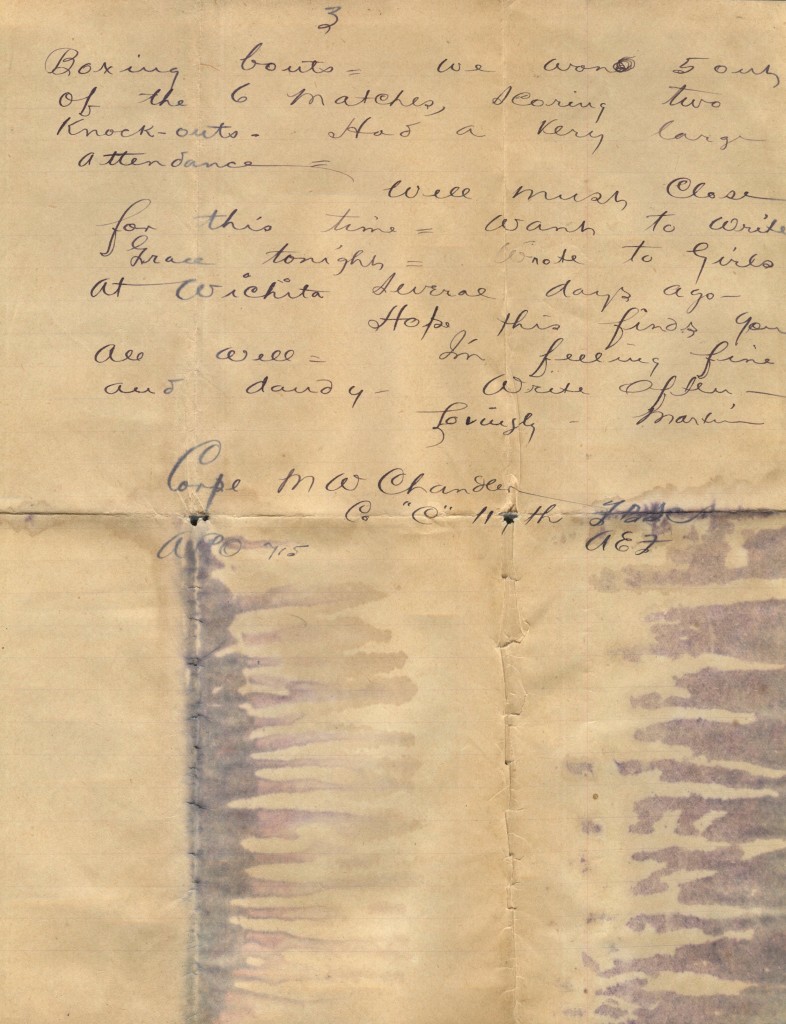 3
Boxing bouts = We won 5 out
of the 6 Matches, scoring two
Knock-outs - Had a very large
attendance =
Well must Close
for this time = Want to Write
Grace tonight = Wrote to Girls
at Wichita several days ago -
Hope this finds you
all well = I'm feeling fine
and dandy - Write Often -
Lovingly - Martin
Corpl M W Chandler
Co "C" 117th
APO 715 AEF